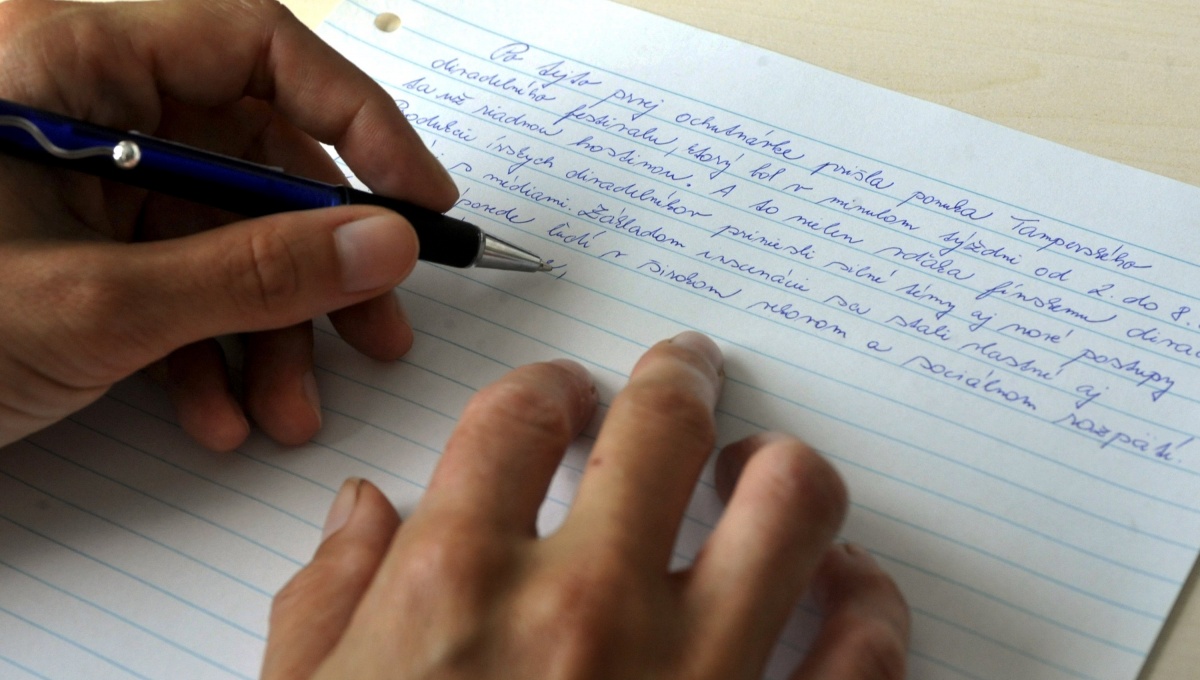 Po tejto prvej ochutnávke prišla ponuka Tamperského
divadelného festivalu, ktorý bol v minulom týždni od 2. do 8.
sa už riadnou hostinou. A to nielen vďaka fínskemu
írskych divadelníkov priniesli silné témy aj nové postupy
s médiami. Základom inscenácie sa stali vlastné aj
ľudí v širokom vekovom a sociálnom rozpätí.